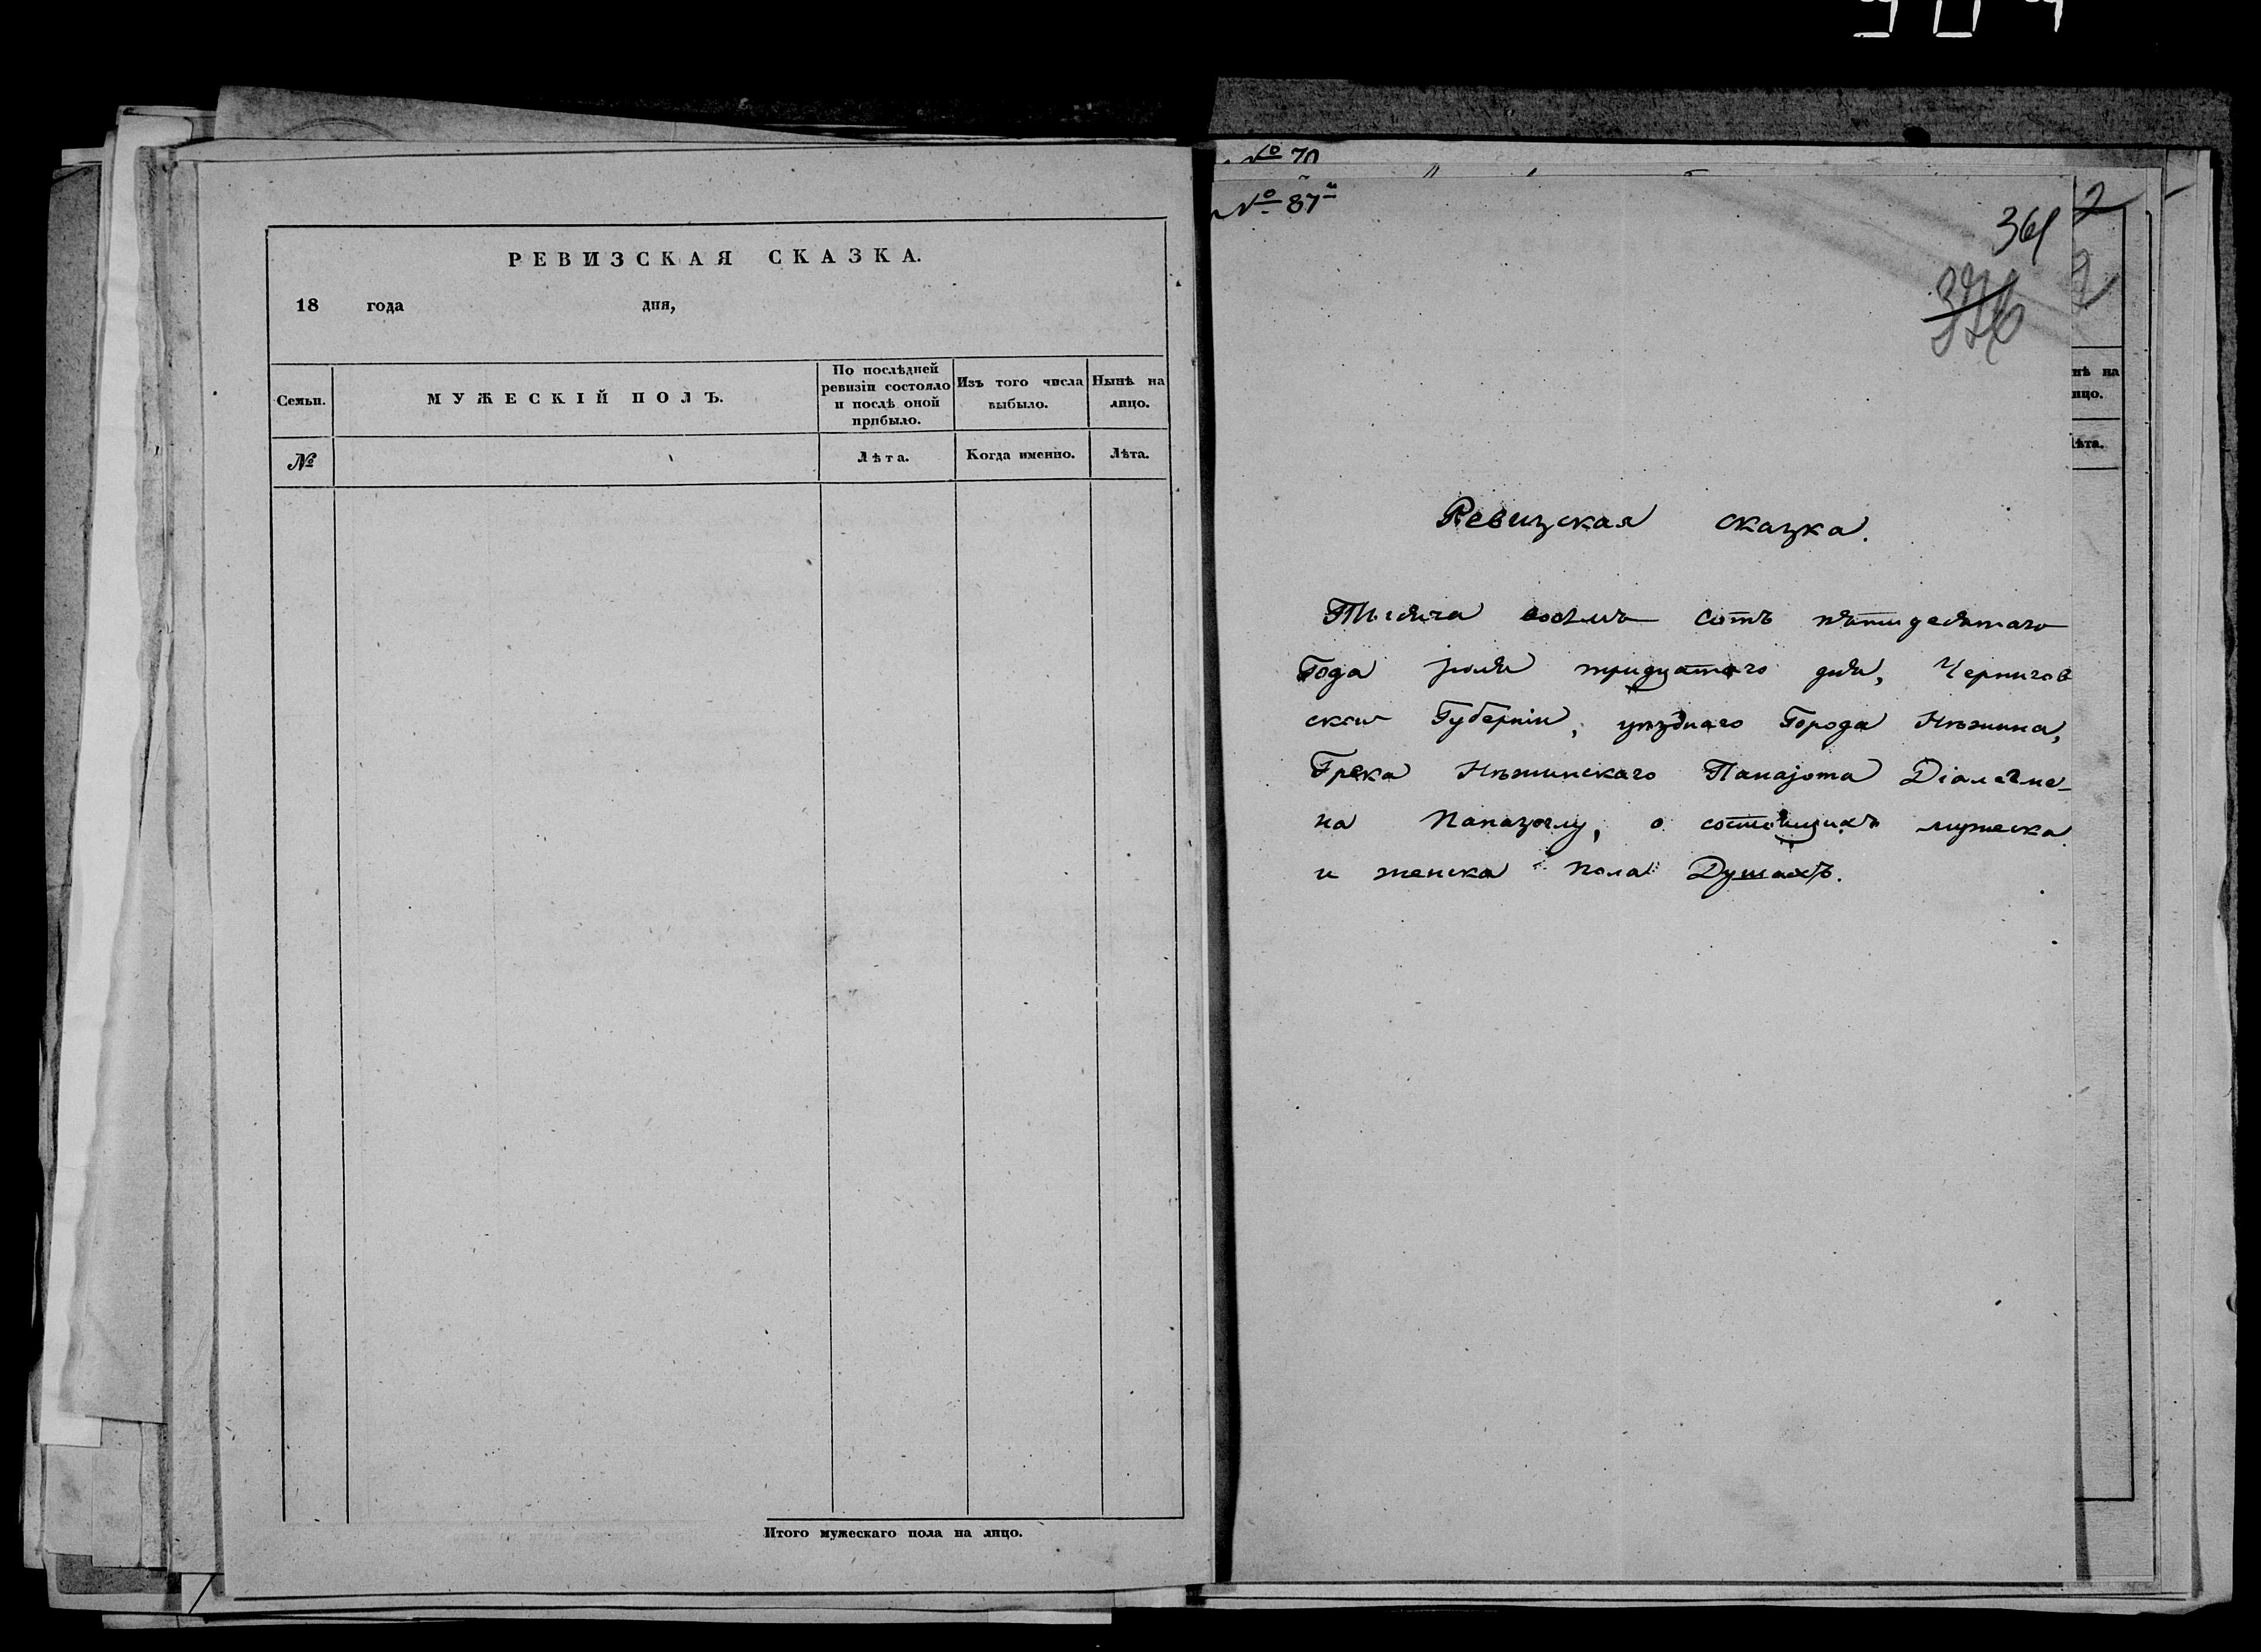 РЕВИЗСКАЯ СКАЗКА.
18 года дня,
Семьи.
МУЖЕСКІЙ ПОЛЪ.
По послѣдней
ревизіи состояло
и послѣ оной
прибыло.
Изъ того числа
выбыло.
Нынѣ на
лицо.
№
Лѣта.
Когда именно.
Лѣта.
Итого мужескаго пола на лицо.
№ 70
№ 87й
361
376
2
2
нѣ на
ицо.
ѣта.
Ревизская сказка.
Тысяча восемь сотъ пятидесятаго
Года Іюля тридцатаго дня, Чернигов
ской Губерніи, уѣзднаго Города Нѣжина,
Грека Нѣжинскаго Панаjота
на Папазоглу, о состоящихъ мужеска
и женска пола Душахъ.